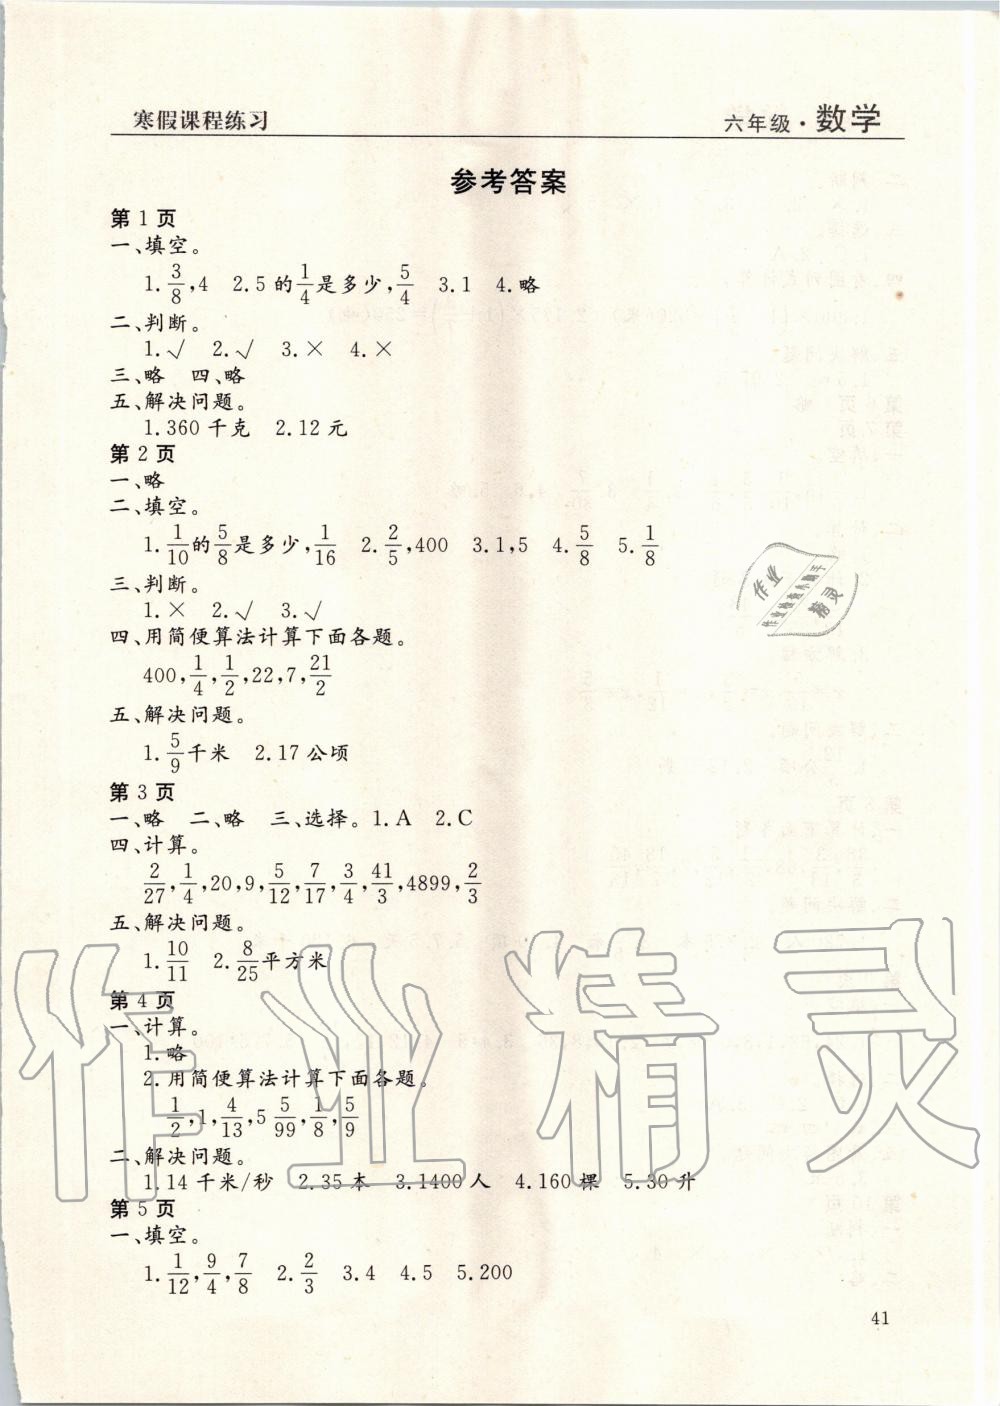 寒假课程练习
六年级·数学
参考答案
第1页
一、填空。
1.3/8,4 2.5的1/4是多少,5/4 3.1 4.略
二、判断。
1.√ 2.√ 3.× 4.×
三、略 四、略
五、解决问题。
1.360千克 2.12元
第2页
一、略
二、填空。
1.1/10的5/8是多少,1/16 2.2/5,400 3.1,5 4.5/8 5.1/8
三、判断。
1.× 2.√ 3.√
四、用简便算法计算下面各题。
400,1/4,1/2,22,7,21/2
五、解决问题。
1.5/9千米 2.17公顷
第3页
一、略 二、略 三、选择。1.A 2.C
四、计算。
2/27,1/4,20,9,5/12,7/17,3/4,41/3,4899,2/3
五、解决问题。
1.10/11 2.8/25平方米
第4页
一、计算。
1.略
2.用简便算法计算下面各题。
1/2,1,4/13,5 5/99,1/8,5/9
二、解决问题。
1.14千米/秒 2.35本 3.1400人 4.160棵 5.30升
第5页
一、填空。
1.1/12,9/4,7/8 2.2/3 3.4 4.5 5.200
41
作业精灵
作业
作业检查小助手
精灵